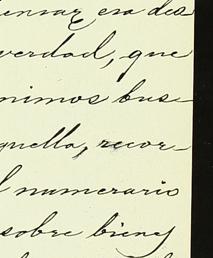 ensar era des
verdad, que
nimos bus-
quella, recor-
l numerario
sobre bienes